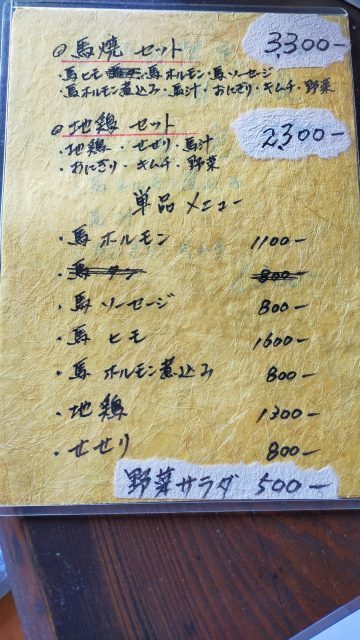 ◎馬焼セット 3300-
・馬ヒモ・馬ホルモン・馬ソーセージ
・馬ホルモン煮込み・馬汁・おにぎり・キムチ・野菜
◎地鶏セット 2300-
・地鶏・せせり・馬汁
・おにぎり・キムチ・野菜
単品メニュー
・馬ホルモン 1100-
・馬タン 800-
・馬ソーセージ 800-
・馬ヒモ 1600-
・馬ホルモン煮込み 800-
・地鶏 1300-
・せせり 800-
野菜サラダ 500-